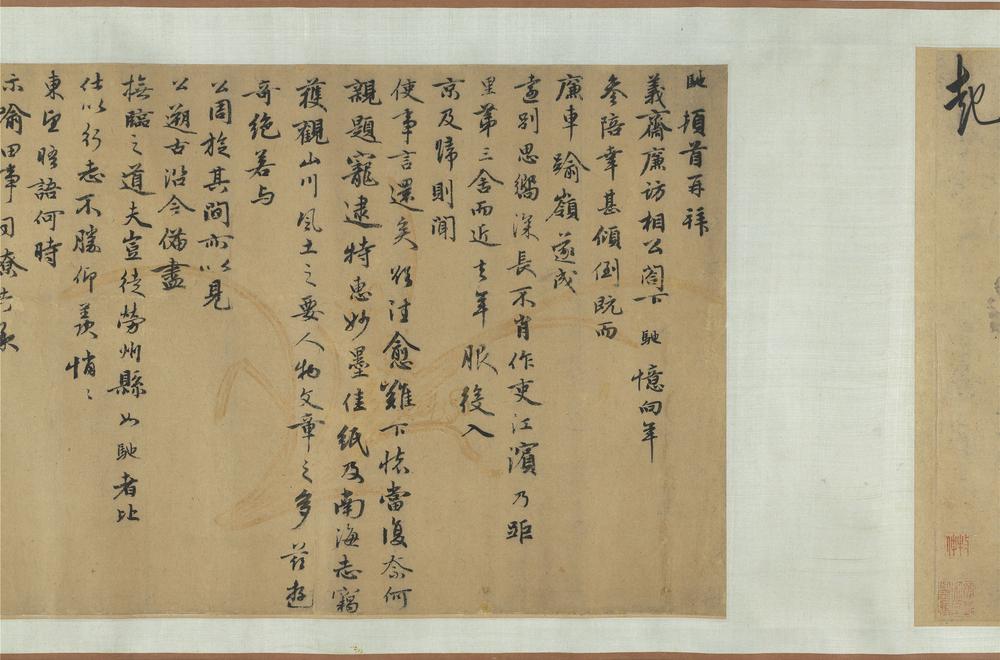 起
馳頓首再拜
義齋廉訪相公閣下馳憶向年
參陪幸甚傾倒既而
廉車踰嶺遂成
遠別思嚮深長不肖作吏江濱乃距
里第三舍而近去年服後入
京及歸則聞
使事言還矣欣注愈難下懷當復奈何
親題寵逮特惠妙墨佳紙及南海志竊
獲觀山川風土之要人物文章之多茲遊
奇絶若与
公周旋其間而以見
公遡古沿今備盡
撫臨之道夫豈徒勞州縣如馳者比
仕以行志不勝仰羨悄〻
東望晤語何時
示喻田事司寮